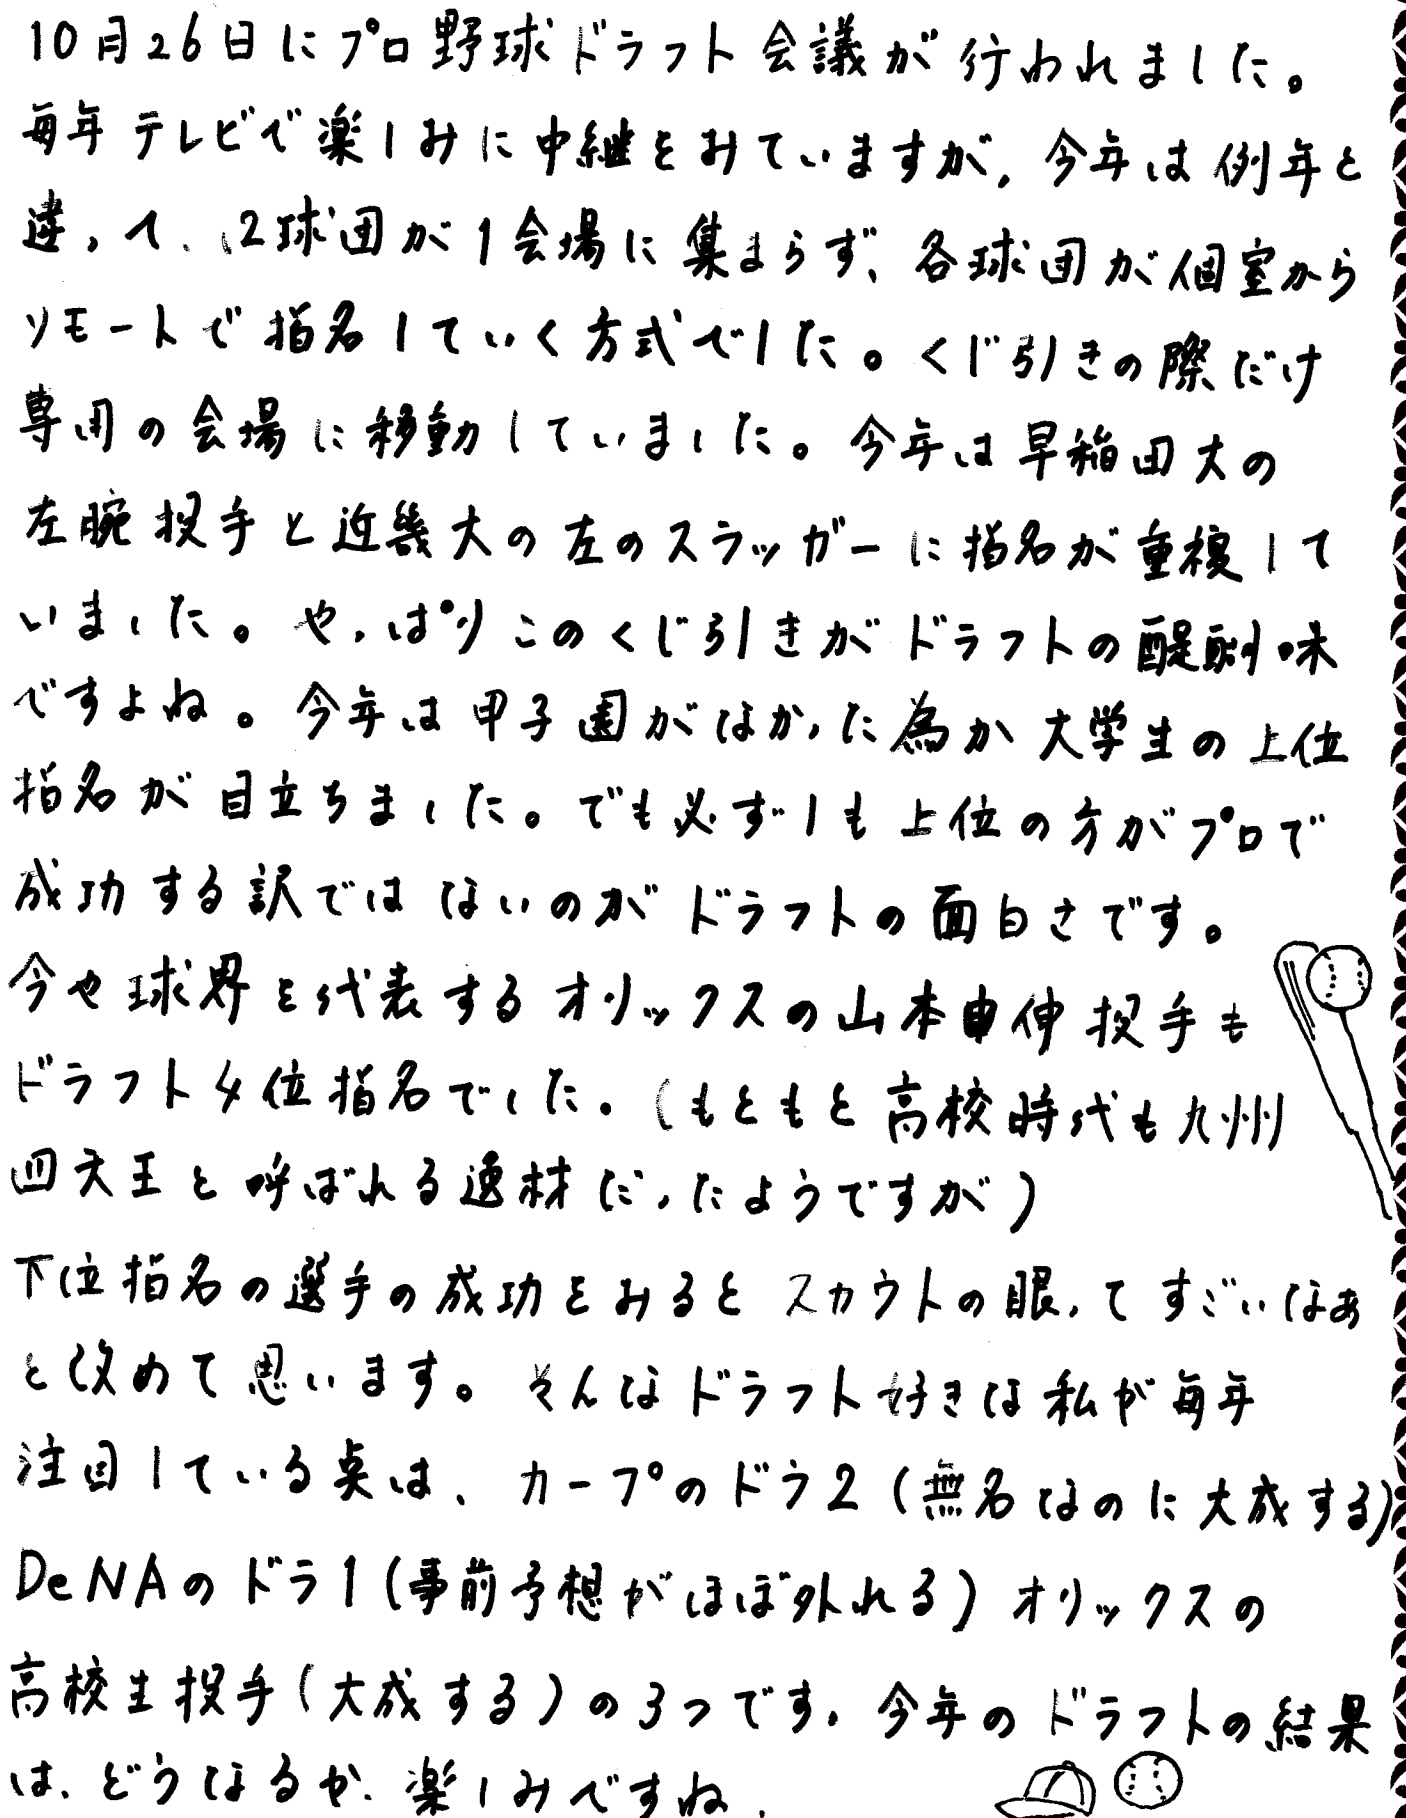 10月26日にプロ野球ドラフト会議が行われました。
毎年テレビで楽しみに中継をみていますが、今年は例年と
違って、12球団が1会場に集まらず、各球団が個室から
リモートで指名していく方式でした。くじ引きの際だけ
専用の会場に移動していました。今年は早稲田大の
左腕投手と近畿大の左のスラッガーに指名が重複して
いました。やっぱりこのくじ引きがドラフトの醍醐味
ですよね。今年は甲子園がなかった為か大学生の上位
指名が目立ちました。でも必ずしも上位の方がプロで
成功する訳ではないのがドラフトの面白さです。
今や球界を代表するオリックスの山本由伸投手も
ドラフト4位指名でした。(もともと高校時代も九州
四天王と呼ばれる逸材だったようですが)
下位指名の選手の成功をみるとスカウトの眼ってすごいなぁ
と改めて思います。そんなドラフト好きな私が毎年
注目している点は、カープのドラ2(無名なのに大成する)
DeNAのドラ1(事前予想がほぼ外れる)オリックスの
高校生投手(大成する)の3つです。今年のドラフトの結果
は、どうなるか、楽しみですね。